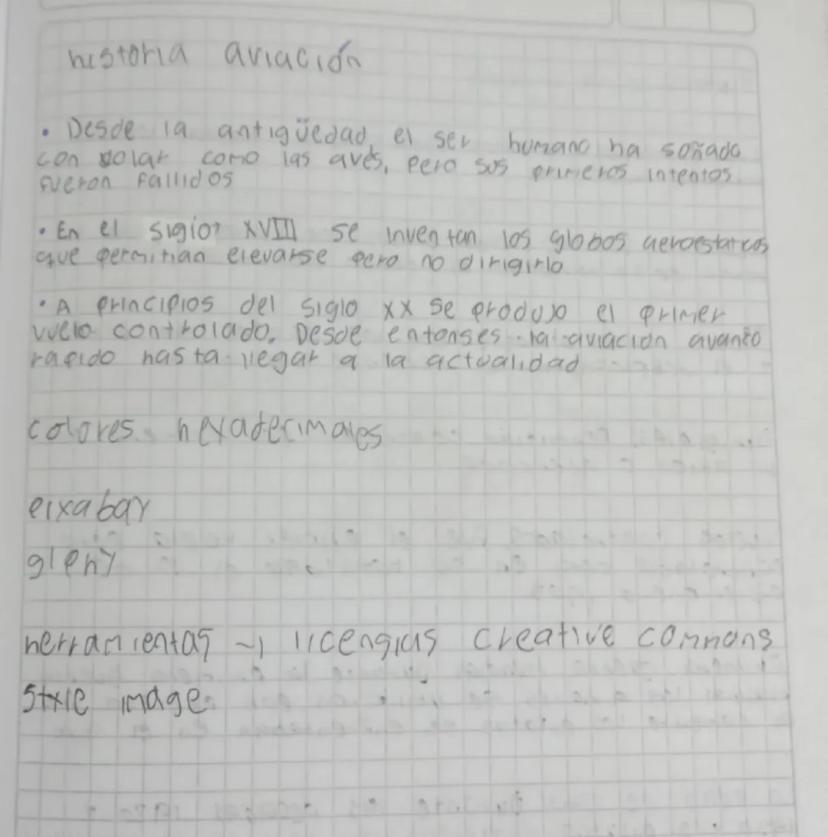 historia aviación
• Desde la antigüedad el ser humano ha soñado
con volar como las aves, pero sus primeros intentos
fueron fallidos
• En el siglor XVIII se inventan los globos aeroestaticos
que permitian elevarse pero no dirigirlo
• A principios del siglo XX se produjo el primer
vuelo controlado. Desde entonses la aviación avanzo
rapido hasta llegar a la actualidad
colores hexadecimales
pixabay
gleny
herramientas → licengias creative commons
style image